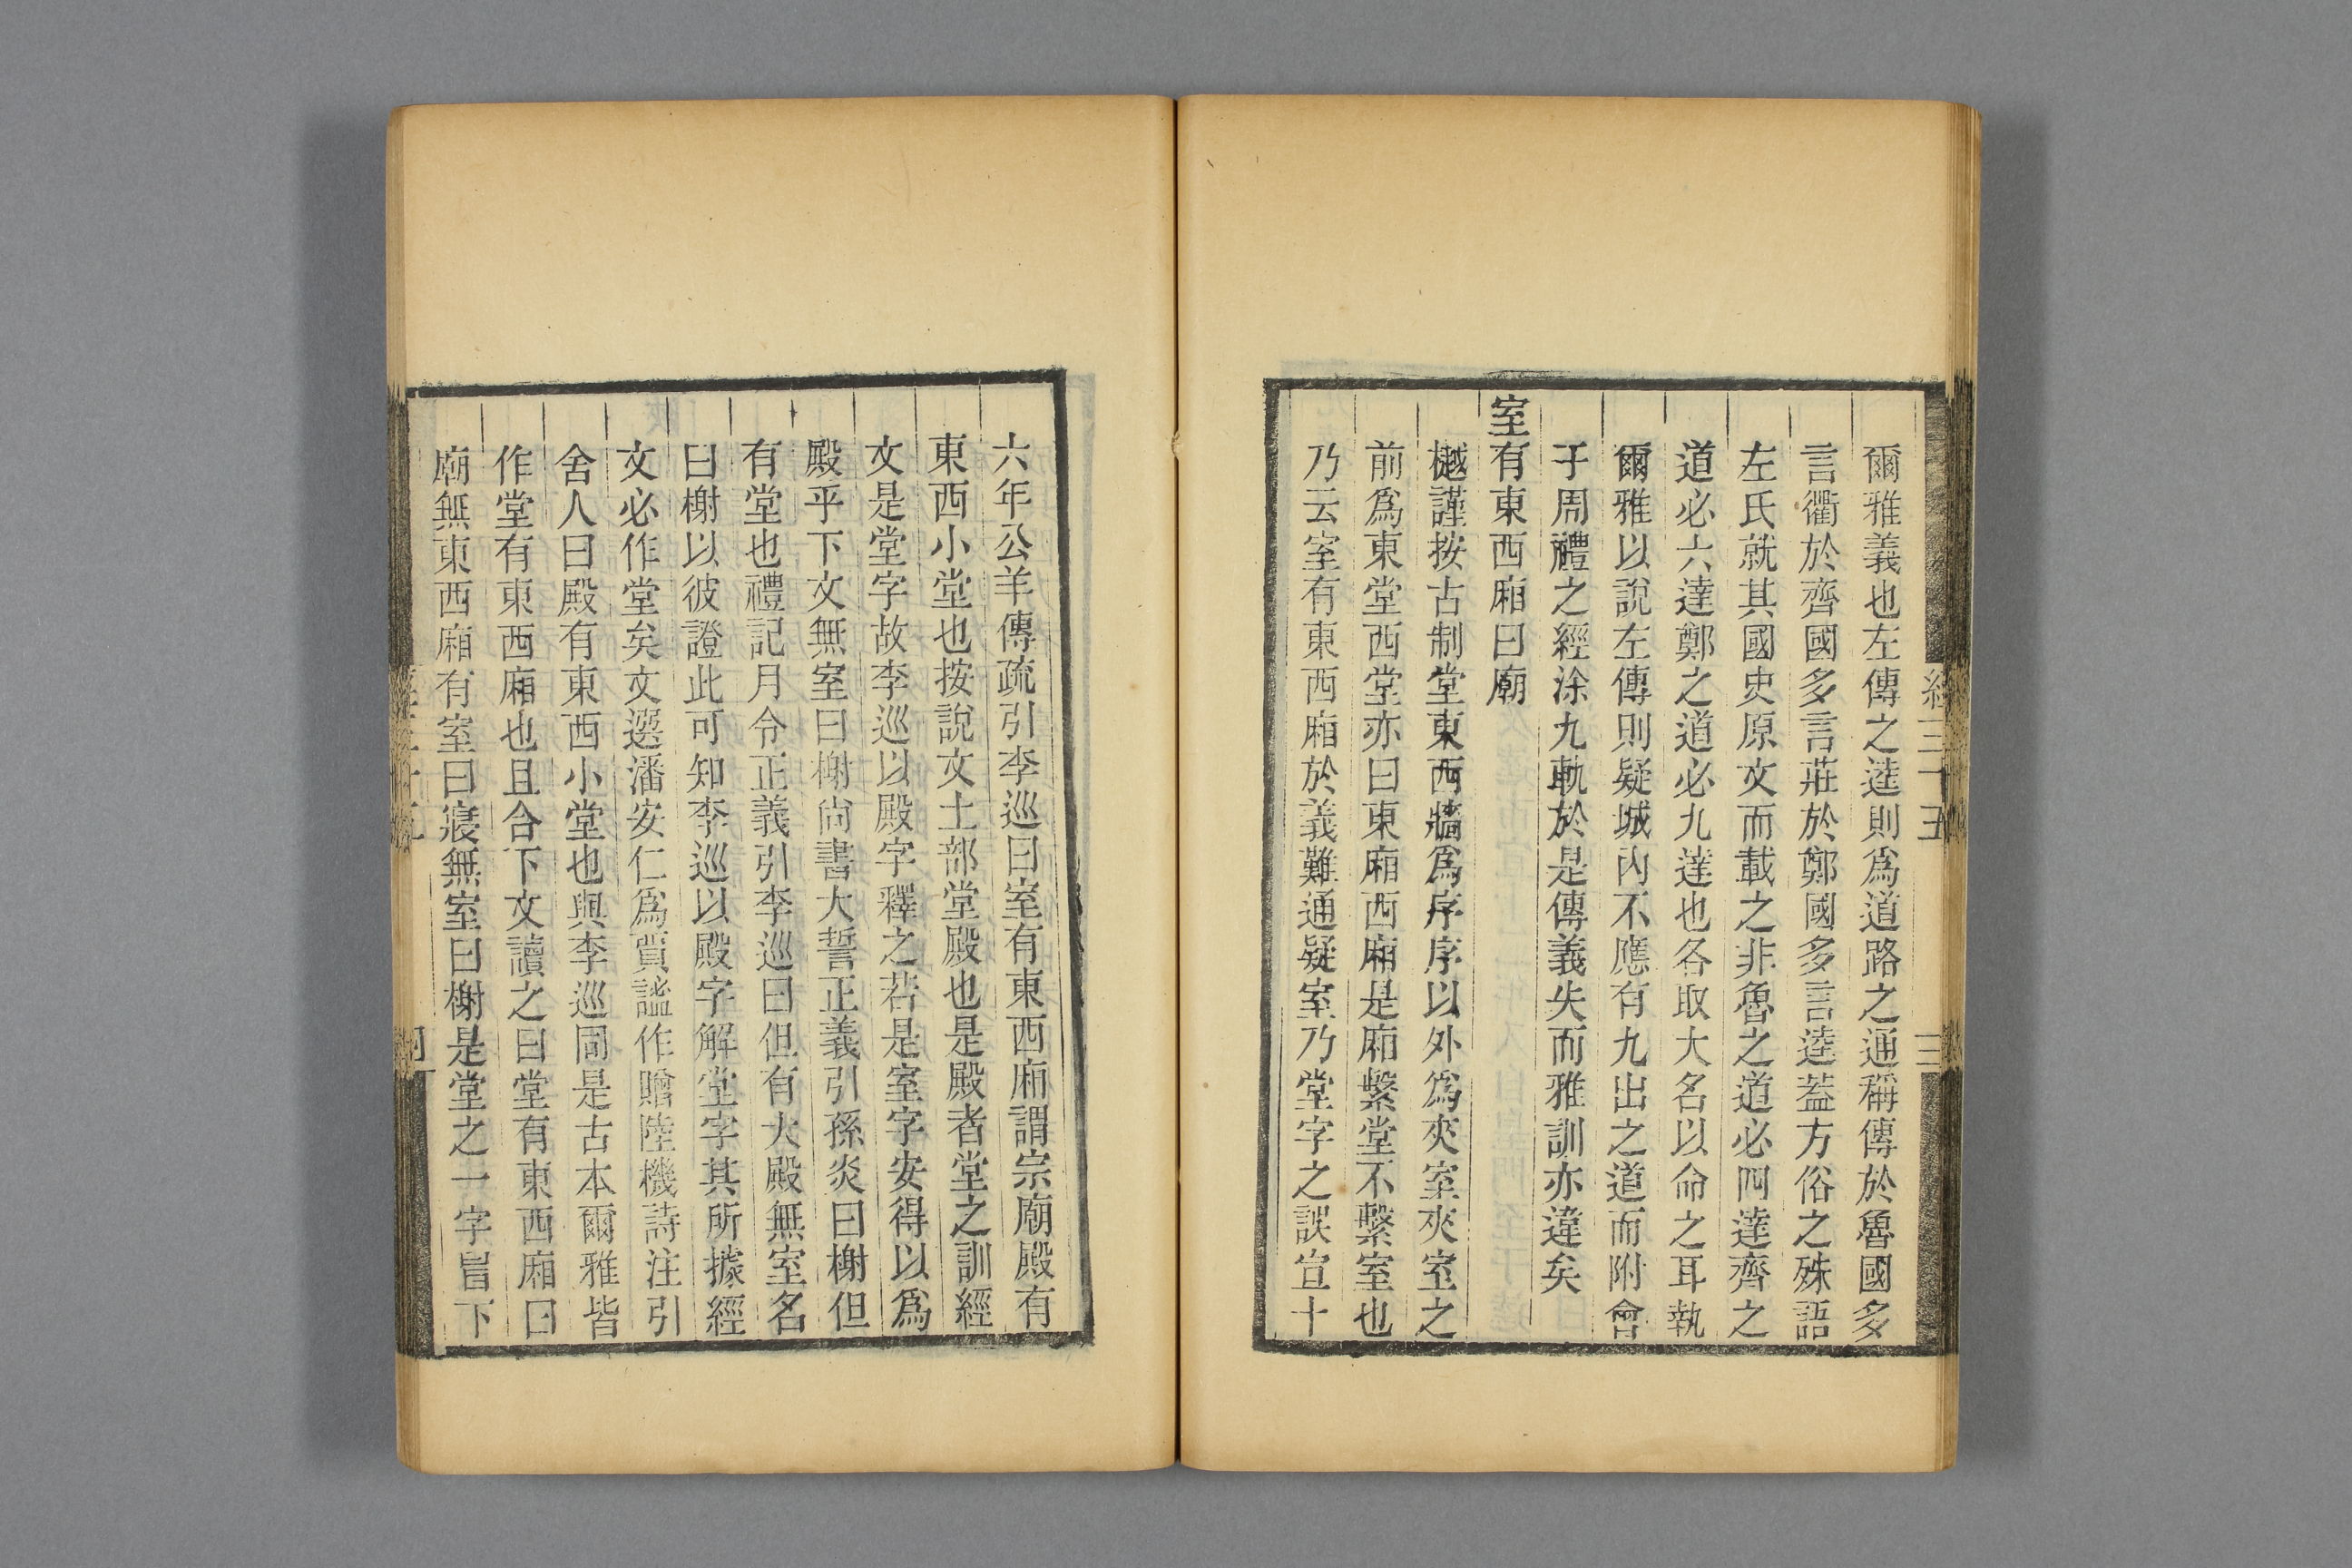 爾雅義也左傳之逵則爲道路之通稱傳於魯國多
言衢於齊國多言莊於鄭國多言逵葢方俗之殊語
左氏就其國史原文而載之非魯之道必四達齊之
道必六達鄭之道必九達也各取大名以命之耳執
爾雅以說左傳則疑城內不應有九出之道而附會
于周禮之經涂九軌於是傳義失而雅訓亦違矣
室有東西廂曰廟
樾謹按古制堂東西牆爲序序以外爲夾室夾室之
前爲東堂西堂亦曰東廂西廂是廂繫堂不繫室也
乃云室有東西廂於義難通疑室乃堂字之誤宣十
經三十五
三
六年公羊傳疏引李巡曰室有東西廂謂宗廟殿有
東西小堂也按說文土部堂殿也是殿者堂之訓經
文是堂字故李巡以殿字釋之若是室字安得以爲
殿乎下文無室曰榭尙書大誓正義引孫炎曰榭但
有堂也禮記月令正義引李巡曰但有大殿無室名
曰榭以彼證此可知李巡以殿字解堂字其所據經
文必作堂矣文選潘安仁爲賈謐作贈陸機詩注引
舍人曰殿有東西小堂也與李巡同是古本爾雅皆
作堂有東西廂也且合下文讀之曰堂有東西廂曰
廟無東西廂有室曰寢無室曰榭是堂之一字冒下